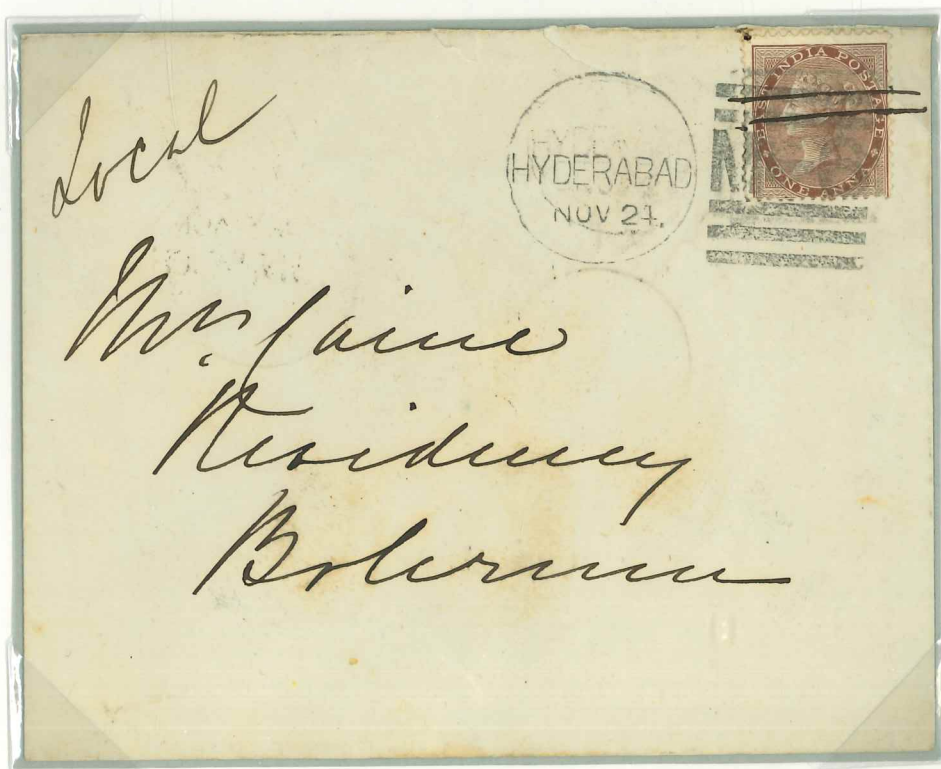 Local
HYDERABAD
NOV 24.
EAST INDIA POSTAGE
ONE ANNA
Mrs. Caine
Residency
Bolarum